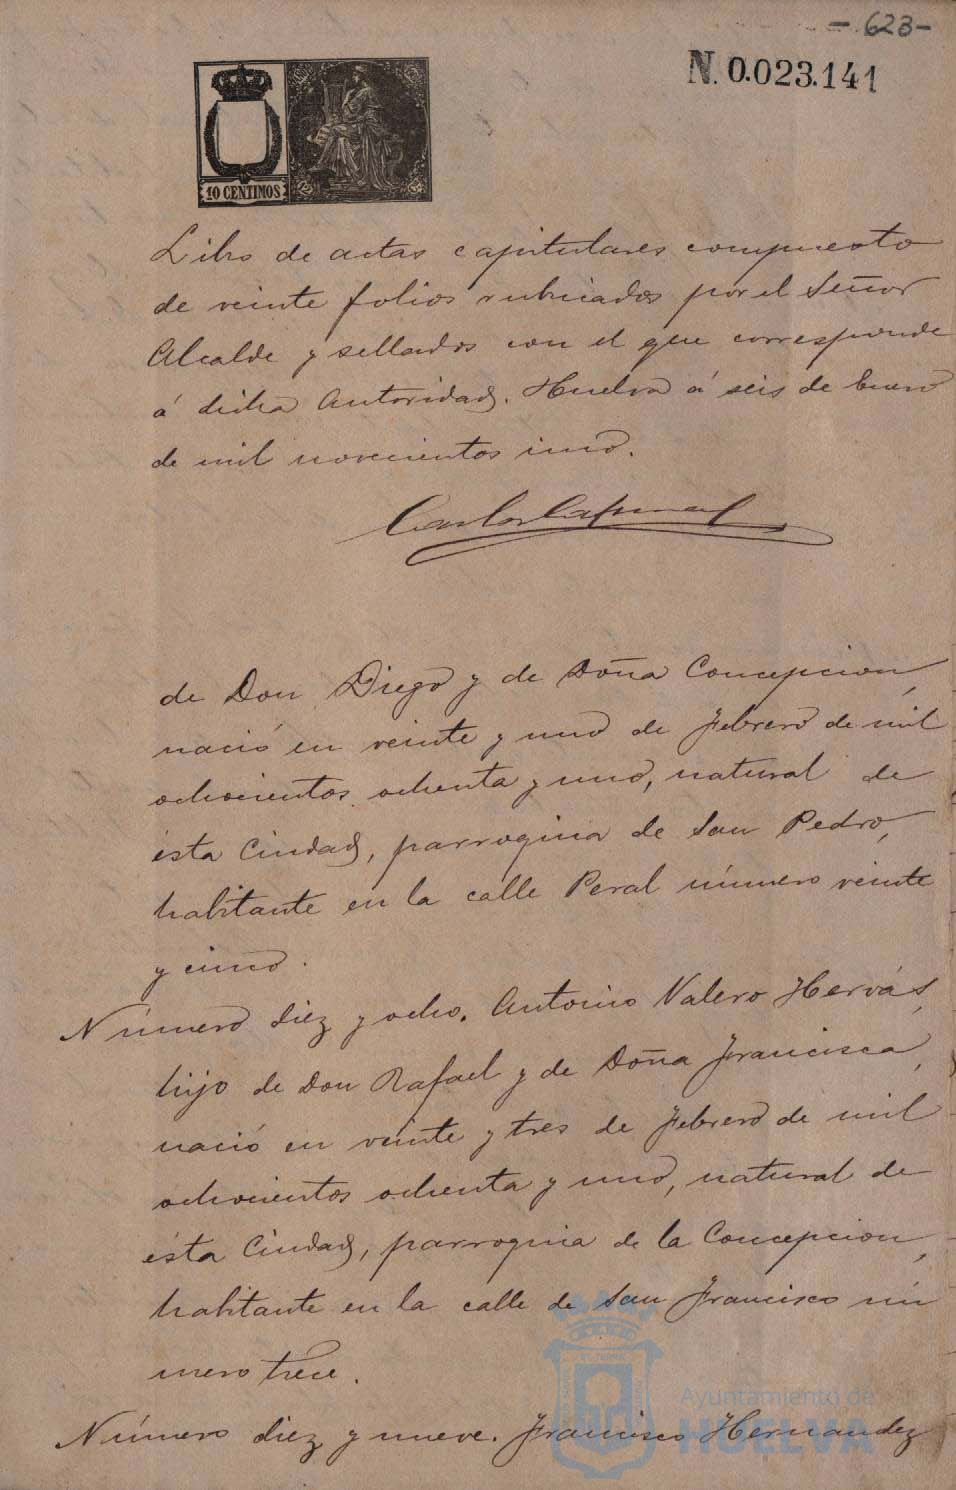 - 623 -
N. 0.023.141
10 CENTIMOS
Libro de actas capitulares compuesto
de veinte folios rubricados por el Señor
Alcalde y sellados con el que corresponde
á dicha Autoridad. Huelva á seis de Enero
de mil novecientos uno.
de Don Diego y de Doña Concepcion,
nació en veinte y uno de Febrero de mil
ochocientos ochenta y uno, natural de
ésta Ciudad, parroquia de San Pedro,
habitante en la calle Peral número veinte
y cinco.
Número diez y ocho. Antonio Valero Hervás,
hijo de Don Rafael y de Doña Francisca,
nació en veinte y tres de Febrero de mil
ochocientos ochenta y uno, natural de
ésta Ciudad, parroquia de la Concepcion,
habitante en la calle de San Francisco nú
mero trece.
Número diez y nueve. Francisco Hernandez
Ayuntamiento de
HUELVA